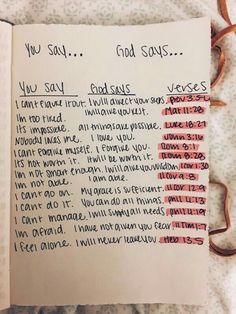 You say... God says...
You say God says verses
I can't figure it out. I will direct your steps. Prov 3:5-6
I'm too tired. I will give you rest. Mat 11:28-
It's impossible. all things are possible. Luke 18:27
Nobody loves me. I love you. John 3:16
I can't forgive myself. I forgive you. Rom 8:1
It's not worth it. It will be worth it. Rom 8:28
I'm not smart enough. I will give you wisdom. 1 Cor 1:30
I'm not able. I am able. 11 Cor 9:8
I can't go on. My grace is sufficient. 11 Cor 12:9
I can't do it. You can do all things. phil 4:13
I can't manage. I will supply all needs. phil 4:19
I'm afraid. I have not given you fear. 11 Tim 1:7
I feel alone. I will never leave you. Heb 13:5